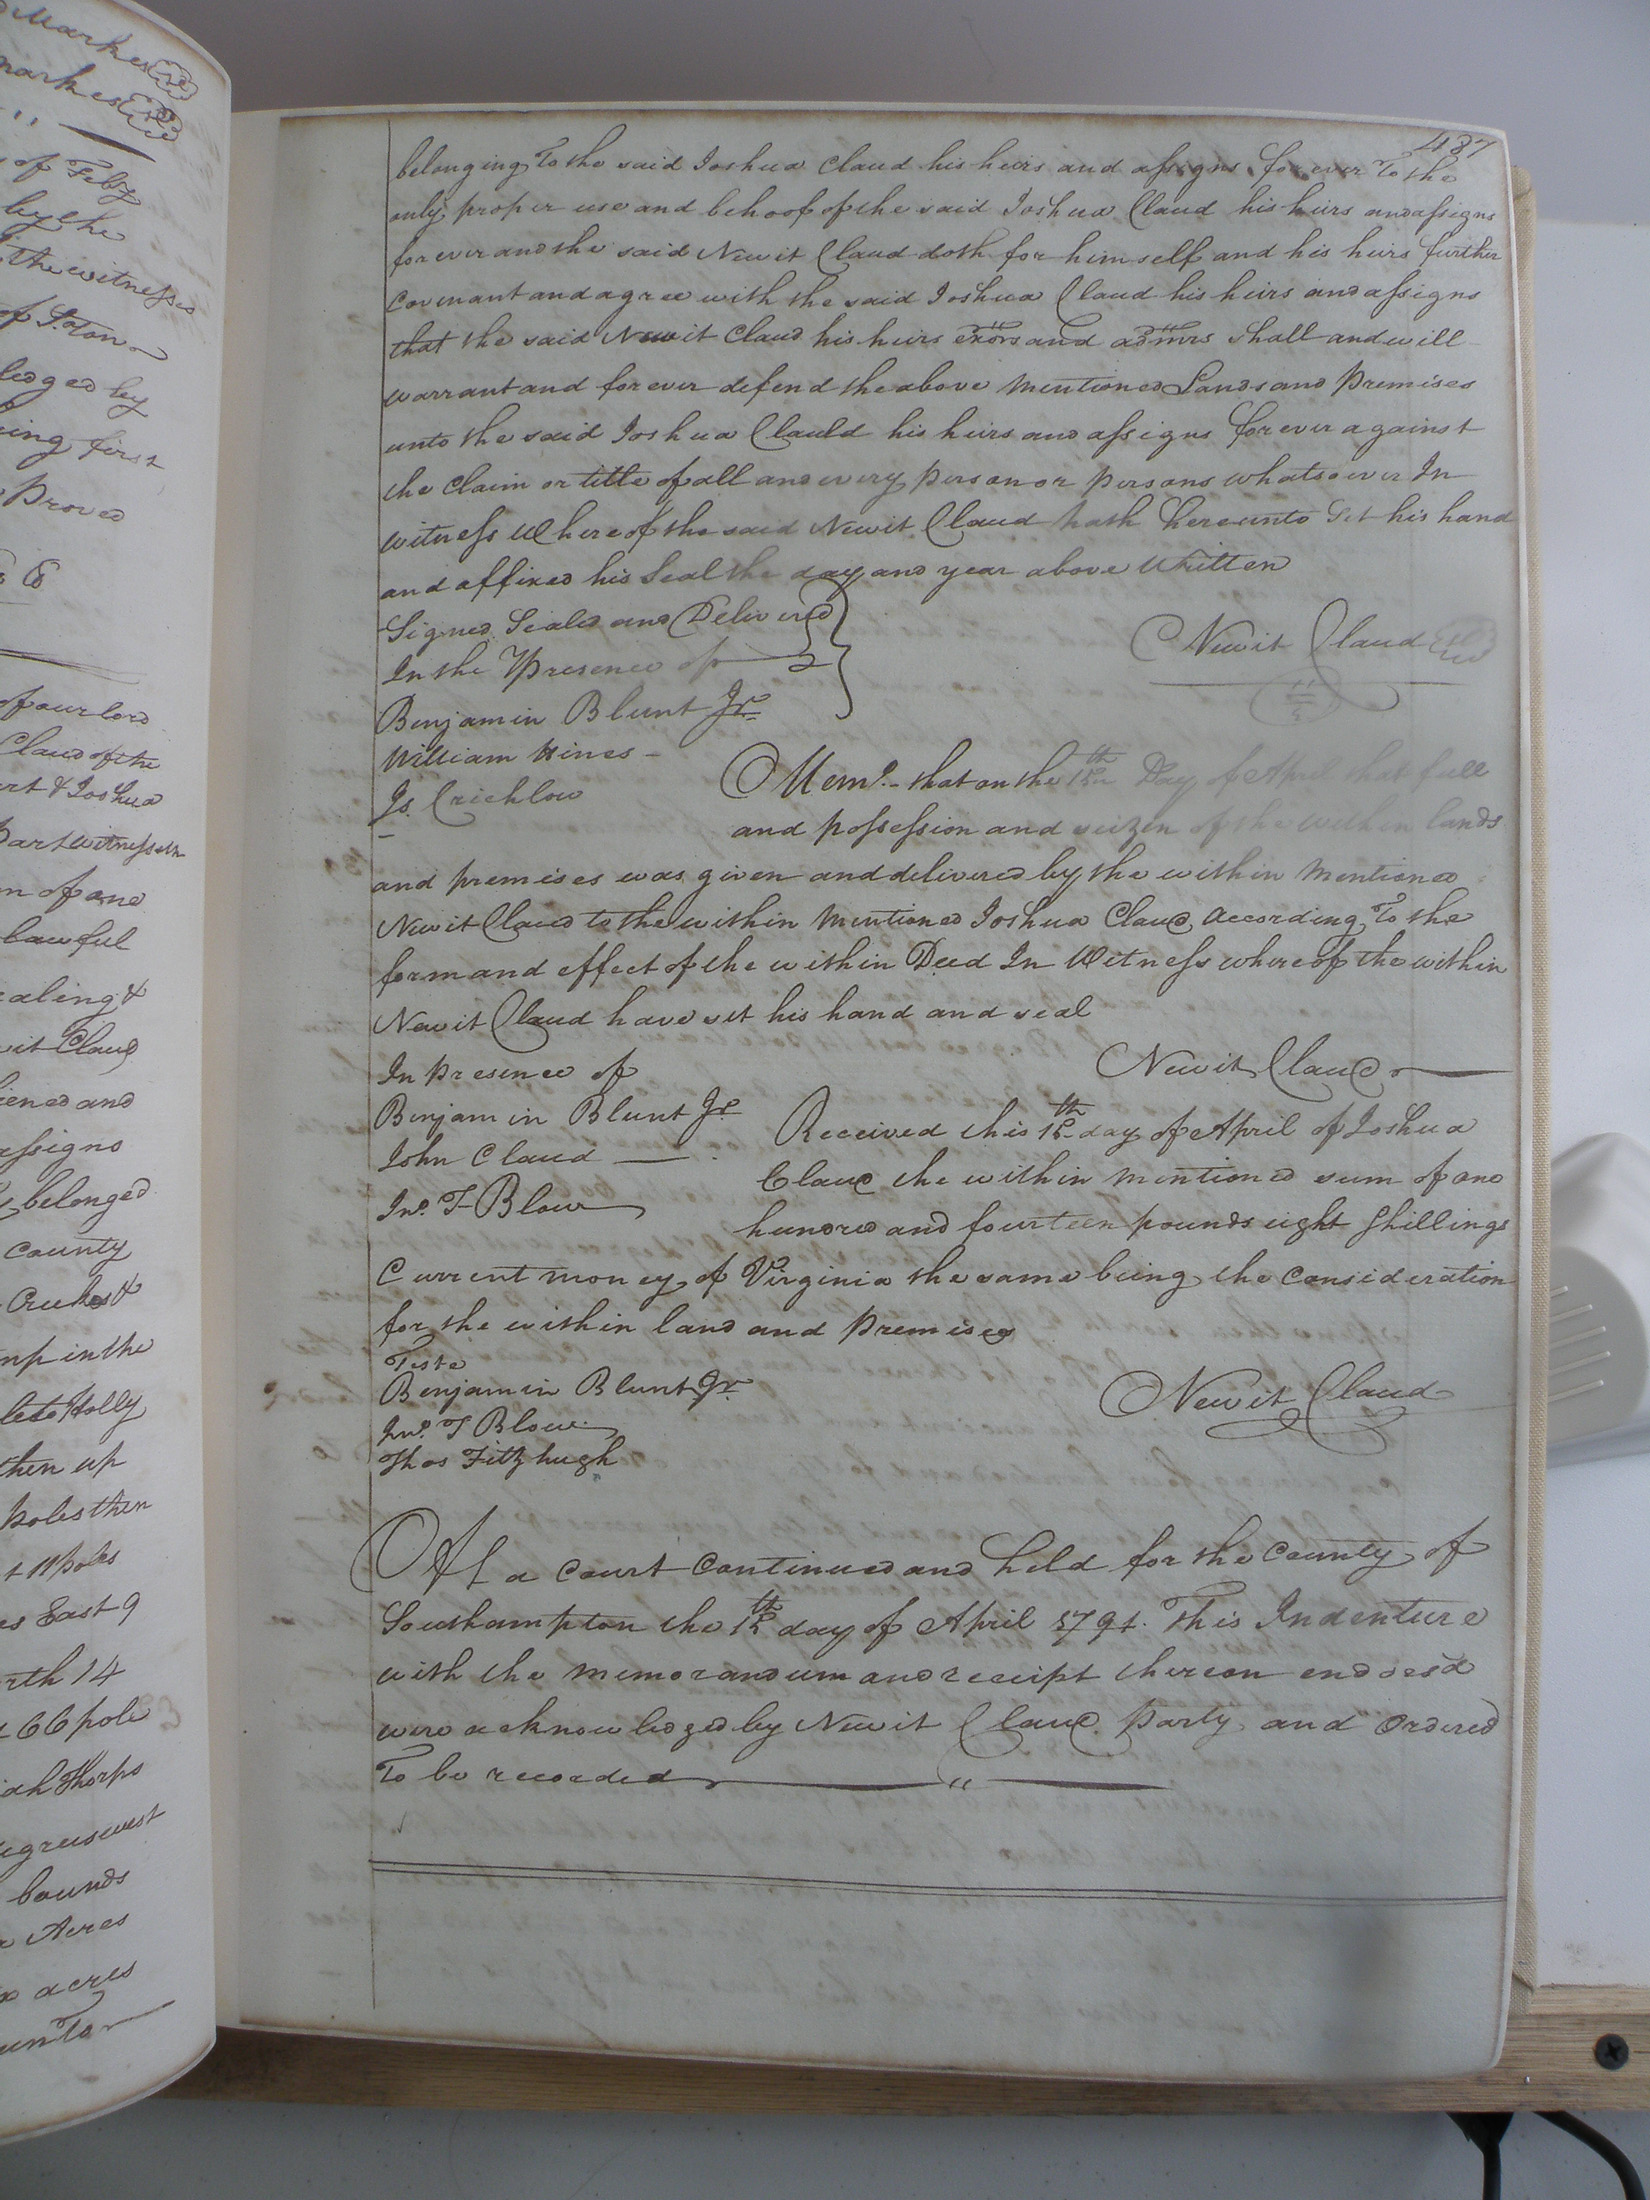 Markes
markes
"
of Feby
by the
the witnesses
of S.oton
ledged by
being first
Proved
of our lord
Claud of the
part & Joshua
Part witnesseth
of one
lawful
sealing &
Claud
and
assigns
belonged
County
Creeks &
in the
Holly
then up
poles then
11 poles
East 9
14
66 pole
Thorps
degrees west
bounds
Acres
acres
unto
487
belonging To the said Joshua Claud his heirs and assigns for ever To the
only proper use and behoof of the said Joshua Claud his heirs and assigns
for ever and the said Newit Claud doth for himself and his heirs further
Covenant and agree with the said Joshua Claud his heirs and assigns
that the said Newit Claud his heirs exors and admrs shall and will
warrant and for ever defend the above Mentioned Lands and Premises
unto the said Joshua Clauld his heirs and assigns for ever against
the Claim or title of all and every person or persons whatsoever In
witness Whereof the said Newit Claud hath hereunto Set his hand
and affixed his Seal the day and year above Written
Signed Sealed and Delivered
In the Presence of
Newit Claud
Benjamin Blunt Jr.
William Hines
Js. Crichlow
Memo. that on the Day of April that full
and possession and seizen of the within lands
and premises was given and delivered by the within Mentioned
Newit Claud to the within Mentioned Joshua Claud According To the
form and effect of the within Deed In Witness whereof the within
Newit Claud have set his hand and seal
In presence of
Newit Claud
Benjamin Blunt Jr.
John Claud
Jno. T Blow
Received this day of April of Joshua
Claud the within mentioned sum of one
hundred and fourteen pounds eight Shillings
Current money of Virginia the same being the Consideration
for the within land and Premises
Teste
Benjamin Blunt Jr.
Newit Claud
Jno. T Blow
Thos Fitzhugh
At a Court Continued and held for the County of
Southampton the day of April This Indenture
with the memorandum and receipt thereon endoesd
were acknowledged by Newit Claud Party and Ordered
To be recorded "